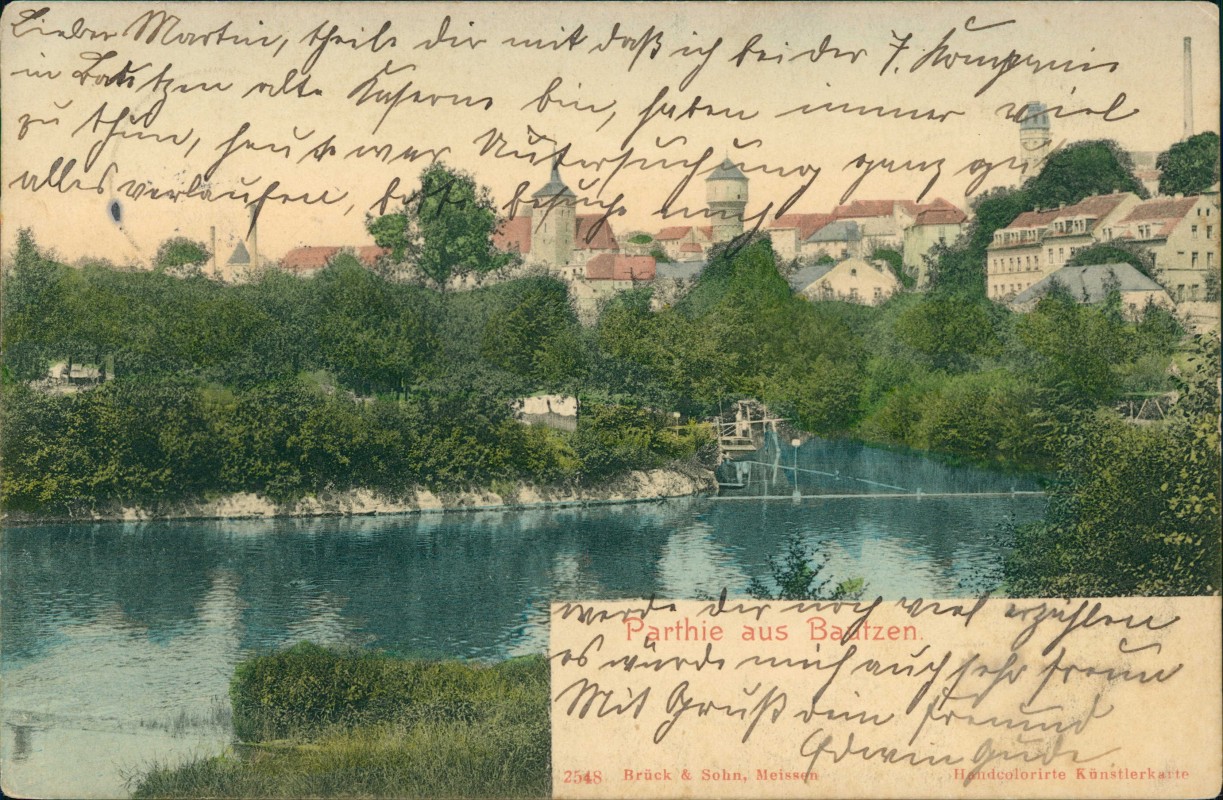 Lieber Martin, theile dir mit daß ich bei der 7. Kompanie
in Bautzen alte Kaserne bin, haben immer viel
zu thun, heute war Untersuchung ganz gut
alles verlaufen, besuche mich
werde dir noch viel erzählen
Parthie aus Bautzen.
es würde mich auch sehr freun
Mit Gruß dein Freund
Edwin Gude
2548 Brück & Sohn, Meissen Handcolorirte Künstlerkarte